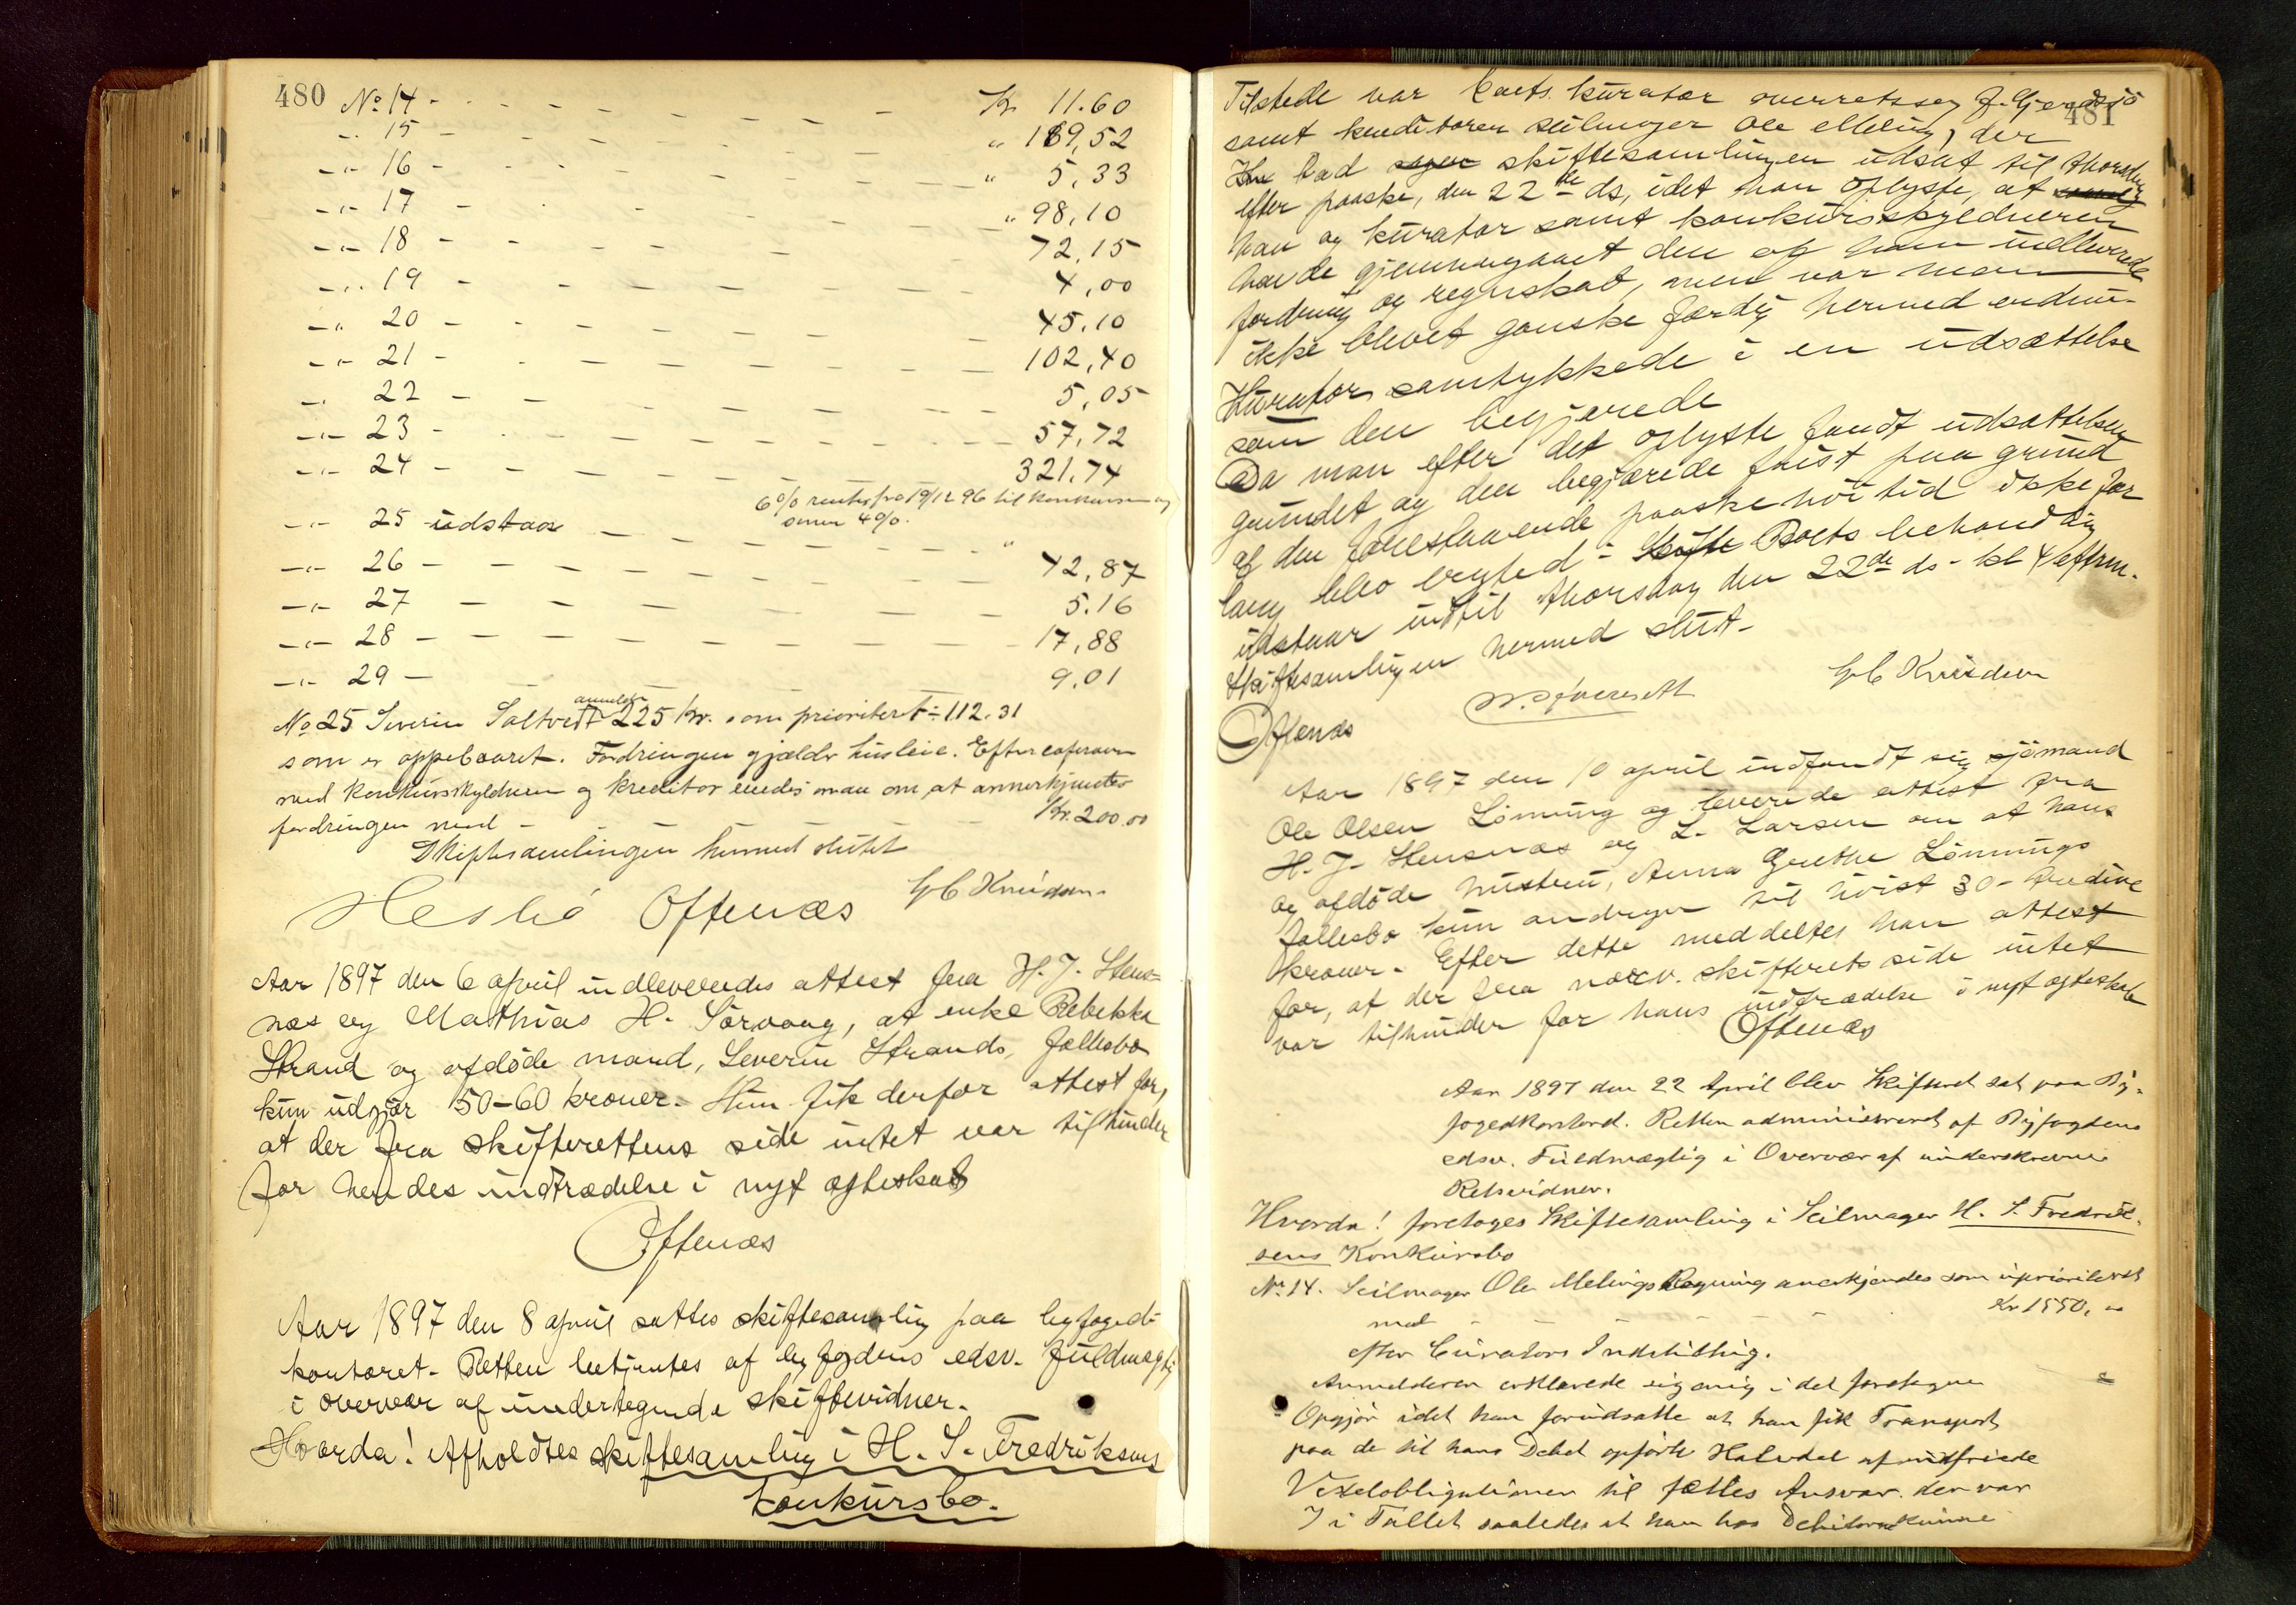 480
No 14 - - - - - - - Kr 11.60
-"- 15 - - - - - - - " 189,52
-"- 16 - - - - - - - " 5,33
-"- 17 - - - - - - - " 98,10
-"- 18 - - - - - - - 72,15
-"- 19 - - - - - - - 4,00
-"- 20 - - - - - - - 45.10
-"- 21 - - - - - - - 102,40
-"- 22 - - - - - - - 5,05
-"- 23 - - - - - - - 57,72
-"- 24 - - - - - - - 321.74
6% renter fra 19/12 96 til konkursen og
senere 4%.
-"- 25 udstaar - - - - - - "
-"- 26 - - - - - - - 42,87
-"- 27 - - - - - - - 5.16
-"- 28 - - - - - - - 17,88
-"- 29 - - - - - - - 9.01
No 25 Severin Saltvedt anmeldte 225 Kr. som prioritert ÷ 112.31
som er oppebaaret. Fordringen gjælder husleie. Efter
med Konkursskyldneren og kreditor enedes man om at annerkjendtes
fordringen med - - - - - Kr. 200.00
Skiftesamlingen hermed sluttet
Heskö Oftenæs G C Knudsen.
Aar 1897 den 6 april indleveredes attest fra H. J. Stens-
næs og Mathias H. Sörvaag, at enke Rebekka
Strand og afdöde mand, Severin Strands, fællesbo
kun udgjör 50-60 kroner. Hun fik derfor attest for,
at der fra skifterettens side intet var tilhinder
for hendes indtrædelse i nyt ægteskab
Oftenæs
Aar 1897 den 8 april sattes skiftesamling paa byfoged-
kontoret. Retten betjentes af byfogdens edsv. fuldmægtig
i overvær af undertegnede skiftevidner.
Hvorda! Afholdtes skiftesamling i H. S. Fredriksens
konkursbo.
481
Tilstede var boets kurator overretssag J. Gjerdsjö
samt kreditoren seilmager Ole Meling, der
bad skiftesamlingen udsat til thorsdag
efter paaske, den 22de ds, idet han oplyste, at
han og kurator samt konkursskyldneren
havde gjennemgaaet den af ham indleverede
fordring og regnskab, men var man
ikke blevet ganske færdig hermed endnu.
Kurator samtykkede i en udsættelse
som den begjærede
Da man efter det oplyste fandt udsættelsen
grundet og den begjærede frist paa grund
af den forestaaende paaskehöitid ikke for
lang blev eragted - Boets behandling
udstaar indtil thorsdag den 22de ds - kl 4 efterm.
Skiftesamlingen hermed slut-
G C Knudsen
Oftenæs
Aar 1897 den 10 april indfandt sig sjömand
Ole Olsen Lönning og leverede attest fra
H. J. Stensnæs og L. Larsen om at hans
og afdöde hustru, Anna Grethe Lönnings
fællesbo kun andrager til höist 30- tredive
kroner. Efter dette meddeltes han attest
for, at der fra nærv. skifterets side intet
var tilhinder for hans indtrædelse i nyt ægteskab
Oftenæs
Aar 1897 den 22 April blev Skifteret sat paa By-
fogedkontoret. Retten administreret af Byfogdens
edsv. Fuldmægtig i Overvær af underskrevne
Retsvidner.
Hvorda! foretoges Skiftesamling i Seilmager H. S. Fredrik-
sens Konkursbo
No 14. Seilmager Ole Melings Regning anerkjendes som uprioriteret
med - - - - - Kr 1550, "
efter Curators Indstilling.
Anmelderen erklærede sig enig i det foretagne
Opgjör idet han forudsatte at han fik Transport
paa de til hans Debet opförte Halvdel af indfriede
Vexelobligationer til fælles Ansvar. der var
7 i Tallet saaledes at han hos Debitor kunne